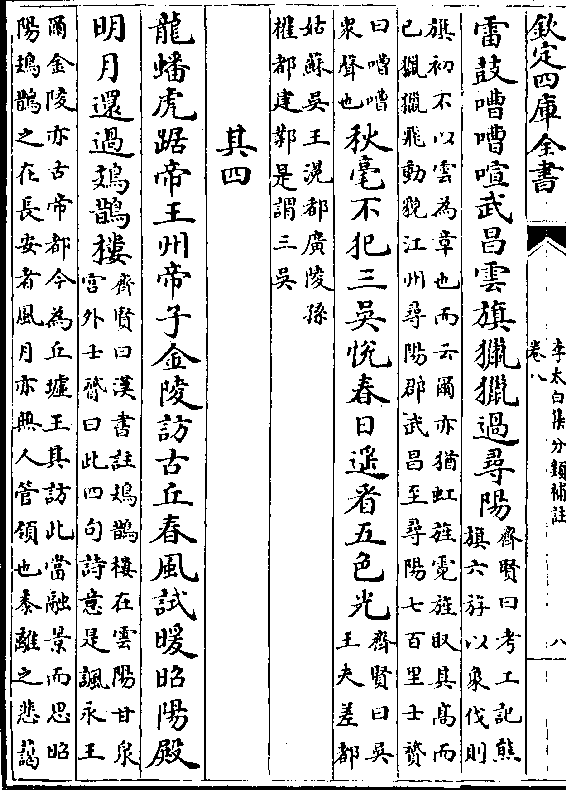 欽定四庫全書
李太白集分類補註
卷八
八
雷鼓嘈嘈喧武昌雲旗獵獵過尋陽
齊賢曰考工記熊
旗六斿以象伐則
旗初不以雲為章也而云爾亦猶虹旌霓旌取其髙而
已獵獵飛動貌江州尋陽郡武昌至尋陽七百里士贇
曰嘈嘈
衆聲也
秋毫不犯三吳悦春日遥看五色光
齊賢曰吳
王夫差都
姑蘇吴王濞都廣陵孫
權都建鄴是謂三吴
其四
龍蟠虎踞帝王州帝子金陵訪古丘春風試暖昭陽殿
明月還過鳷鵲樓
齊賢曰漢書註鳷鵲樓在雲陽甘泉
宫外士贇曰此四句詩意是諷永王
爾金陵亦古帝都今為丘墟王其訪此當融景而思昭
陽鳷鵲之在長安者風月亦無人管領也黍離之悲藹